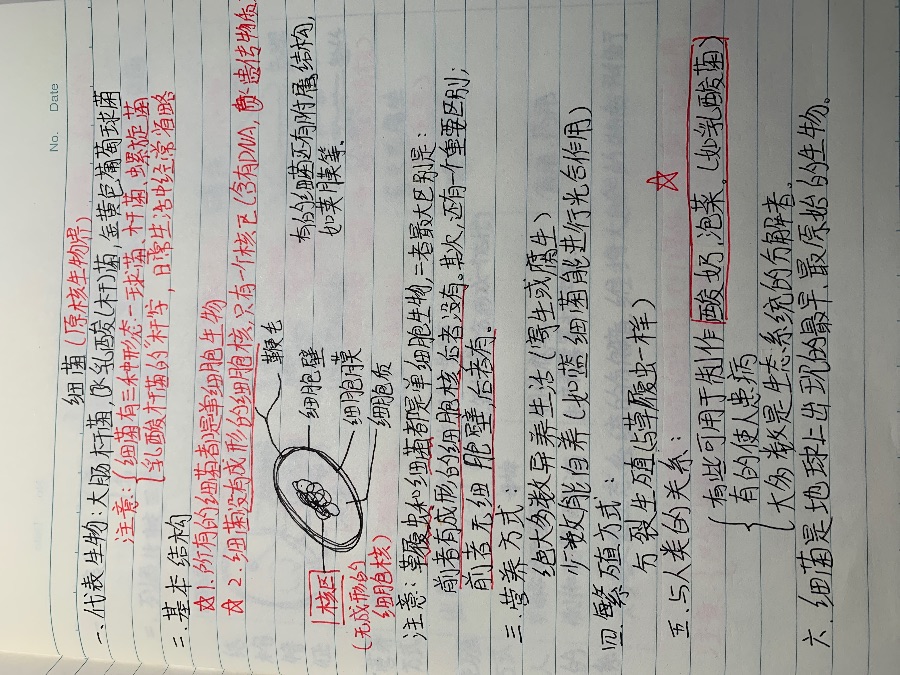 No.    Date
细菌（原核生物界）
一、代表生物：大肠杆菌，乳酸(杆)菌，金黄色葡萄球菌
注意：{细菌有三种形态—球菌、杆菌、螺旋菌
乳酸杆菌的"杆"字，日常生活中经常省略
二、基本结构
☆1. 所有的细菌者都是单细胞生物
☆2. 细菌没有成形的细胞核，只有一个核区（含有DNA，遗传物质
鞭毛
细胞壁
细胞膜
细胞质
核区
（无成形的
细胞核）
有的细菌还有附属结构，
如荚膜等、
注意：草履虫和细菌都是单细胞生物，二者最大区别是：
前者有成形的细胞核后者没有。其次，还有一个重要区别，
前者无细胞壁后者有。
三、营养方式：
绝大多数异养生活（寄生或腐生
少数能自养（如蓝细菌能进行光合作用）
四、繁殖方式：
分裂生殖（与草履虫一样）
五、与人类的关系：
☆
{有些可用于制作酸奶，泡菜。（如乳酸菌）
有的使人患病
大多数是生态系统的分解者。
六、细菌是地球上出现的最早，最原始的生物。